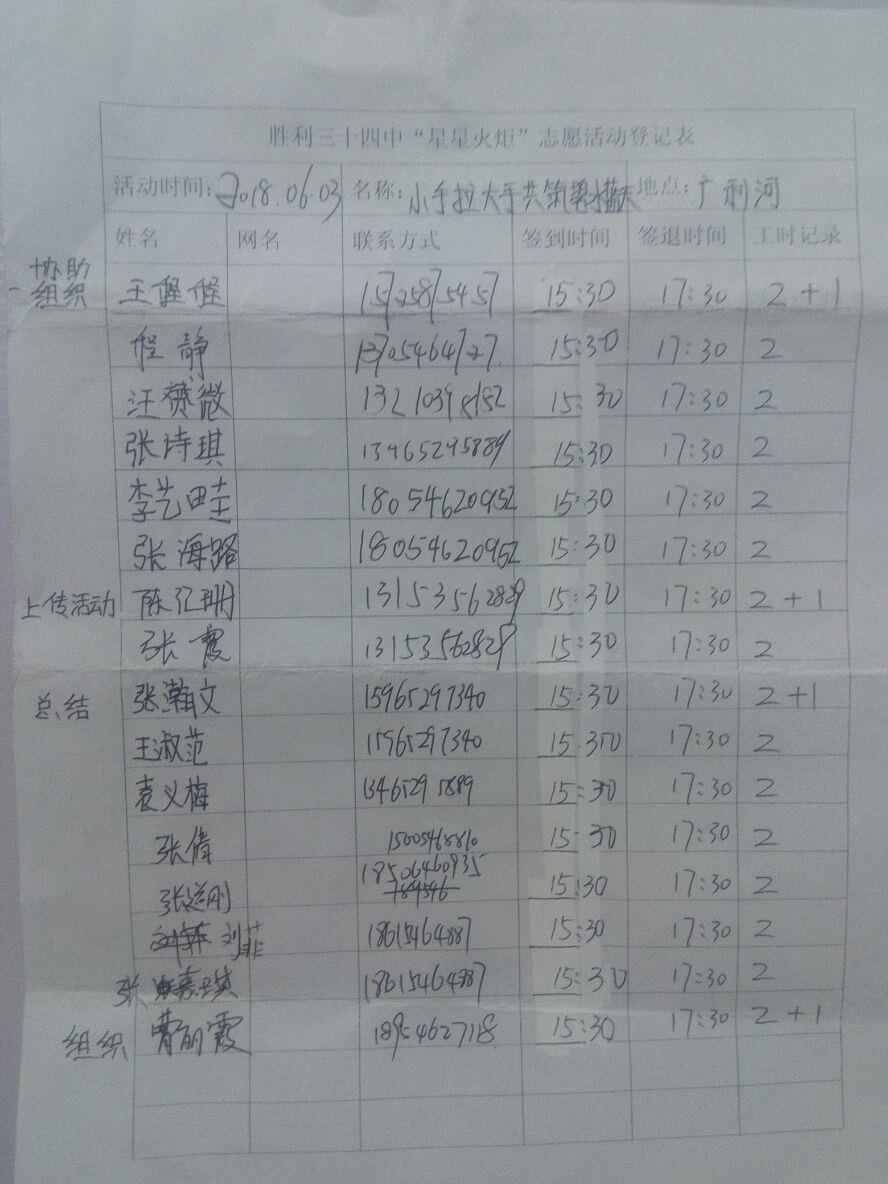 胜利三十四中“星星火炬”志愿活动登记表
活动时间：2018.06.03 名称：小手拉大手共筑 地点：广利河
姓名 网名 联系方式 签到时间 签退时间 工时记录
协助组织 王偓偓 15725875457 15:30 17:30 2+1
程静 13705464727 15:30 17:30 2
汪薇 13210398152 15:30 17:30 2
张诗琪 13465295889 15:30 17:30 2
李艺畦 18054620952 15:30 17:30 2
张海路 18054620952 15:30 17:30 2
上传活动 陈亿珊 13153562829 15:30 17:30 2+1
张霞 13153562829 15:30 17:30 2
总结 张瀚文 15965297340 15:30 17:30 2+1
王淑范 15965297340 15:30 17:30 2
袁义梅 13465295889 15:30 17:30 2
张倩 15:30 17:30 2
张送刚 18506460935 15:30 17:30 2
刘菲 18615464887 15:30 17:30 2
张 18615464887 15:30 17:30 2
组织 曹丽霞 18954627118 15:30 17:30 2+1